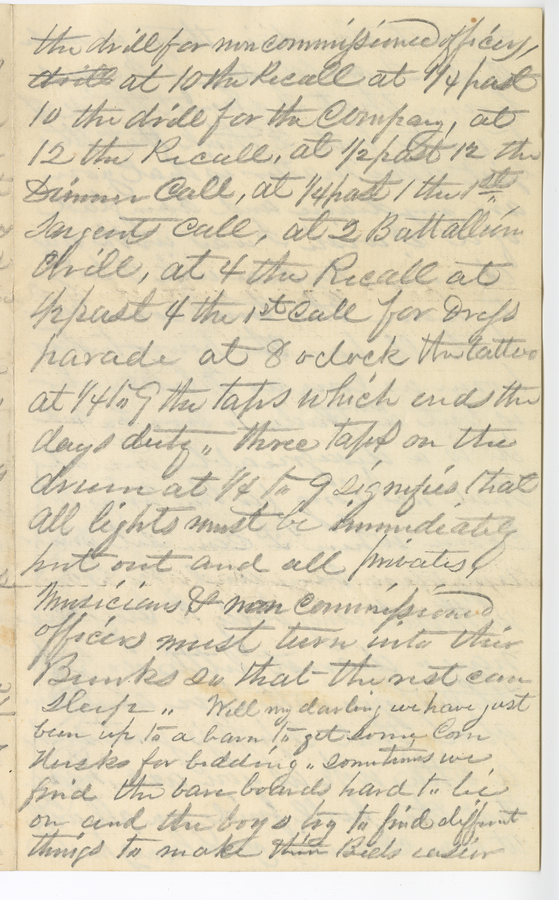 the drill for noncommissioned officers,
drill at 10 the Recall at 1/4 past
10 the drill for the Company, at
12 the Recall, at 1/2 past 12 the
Dinner Call, at 1/4 past 1 the 1st
Sargents Call, at 2 Battallion
drill, at 4 the Recall at
1/2 past 4 the 1st Call for Dress
parade at 8 oclock the tattoo
at 1/4 to 9 the taps which ends the
days duty,, three taps on the
drum at 1/4 to 9 signifies that
all lights must be immediately
put out and all privates,
Musicians & non commissioned
officers must turn into their
Bunks so that the rest can
sleep ,, Well my darling we have just
been up to a barn to get some Corn
Husks for bedding,, sometimes we
find the bare boards hard to lie
on and the boys try to find different
things to make their Beds easier